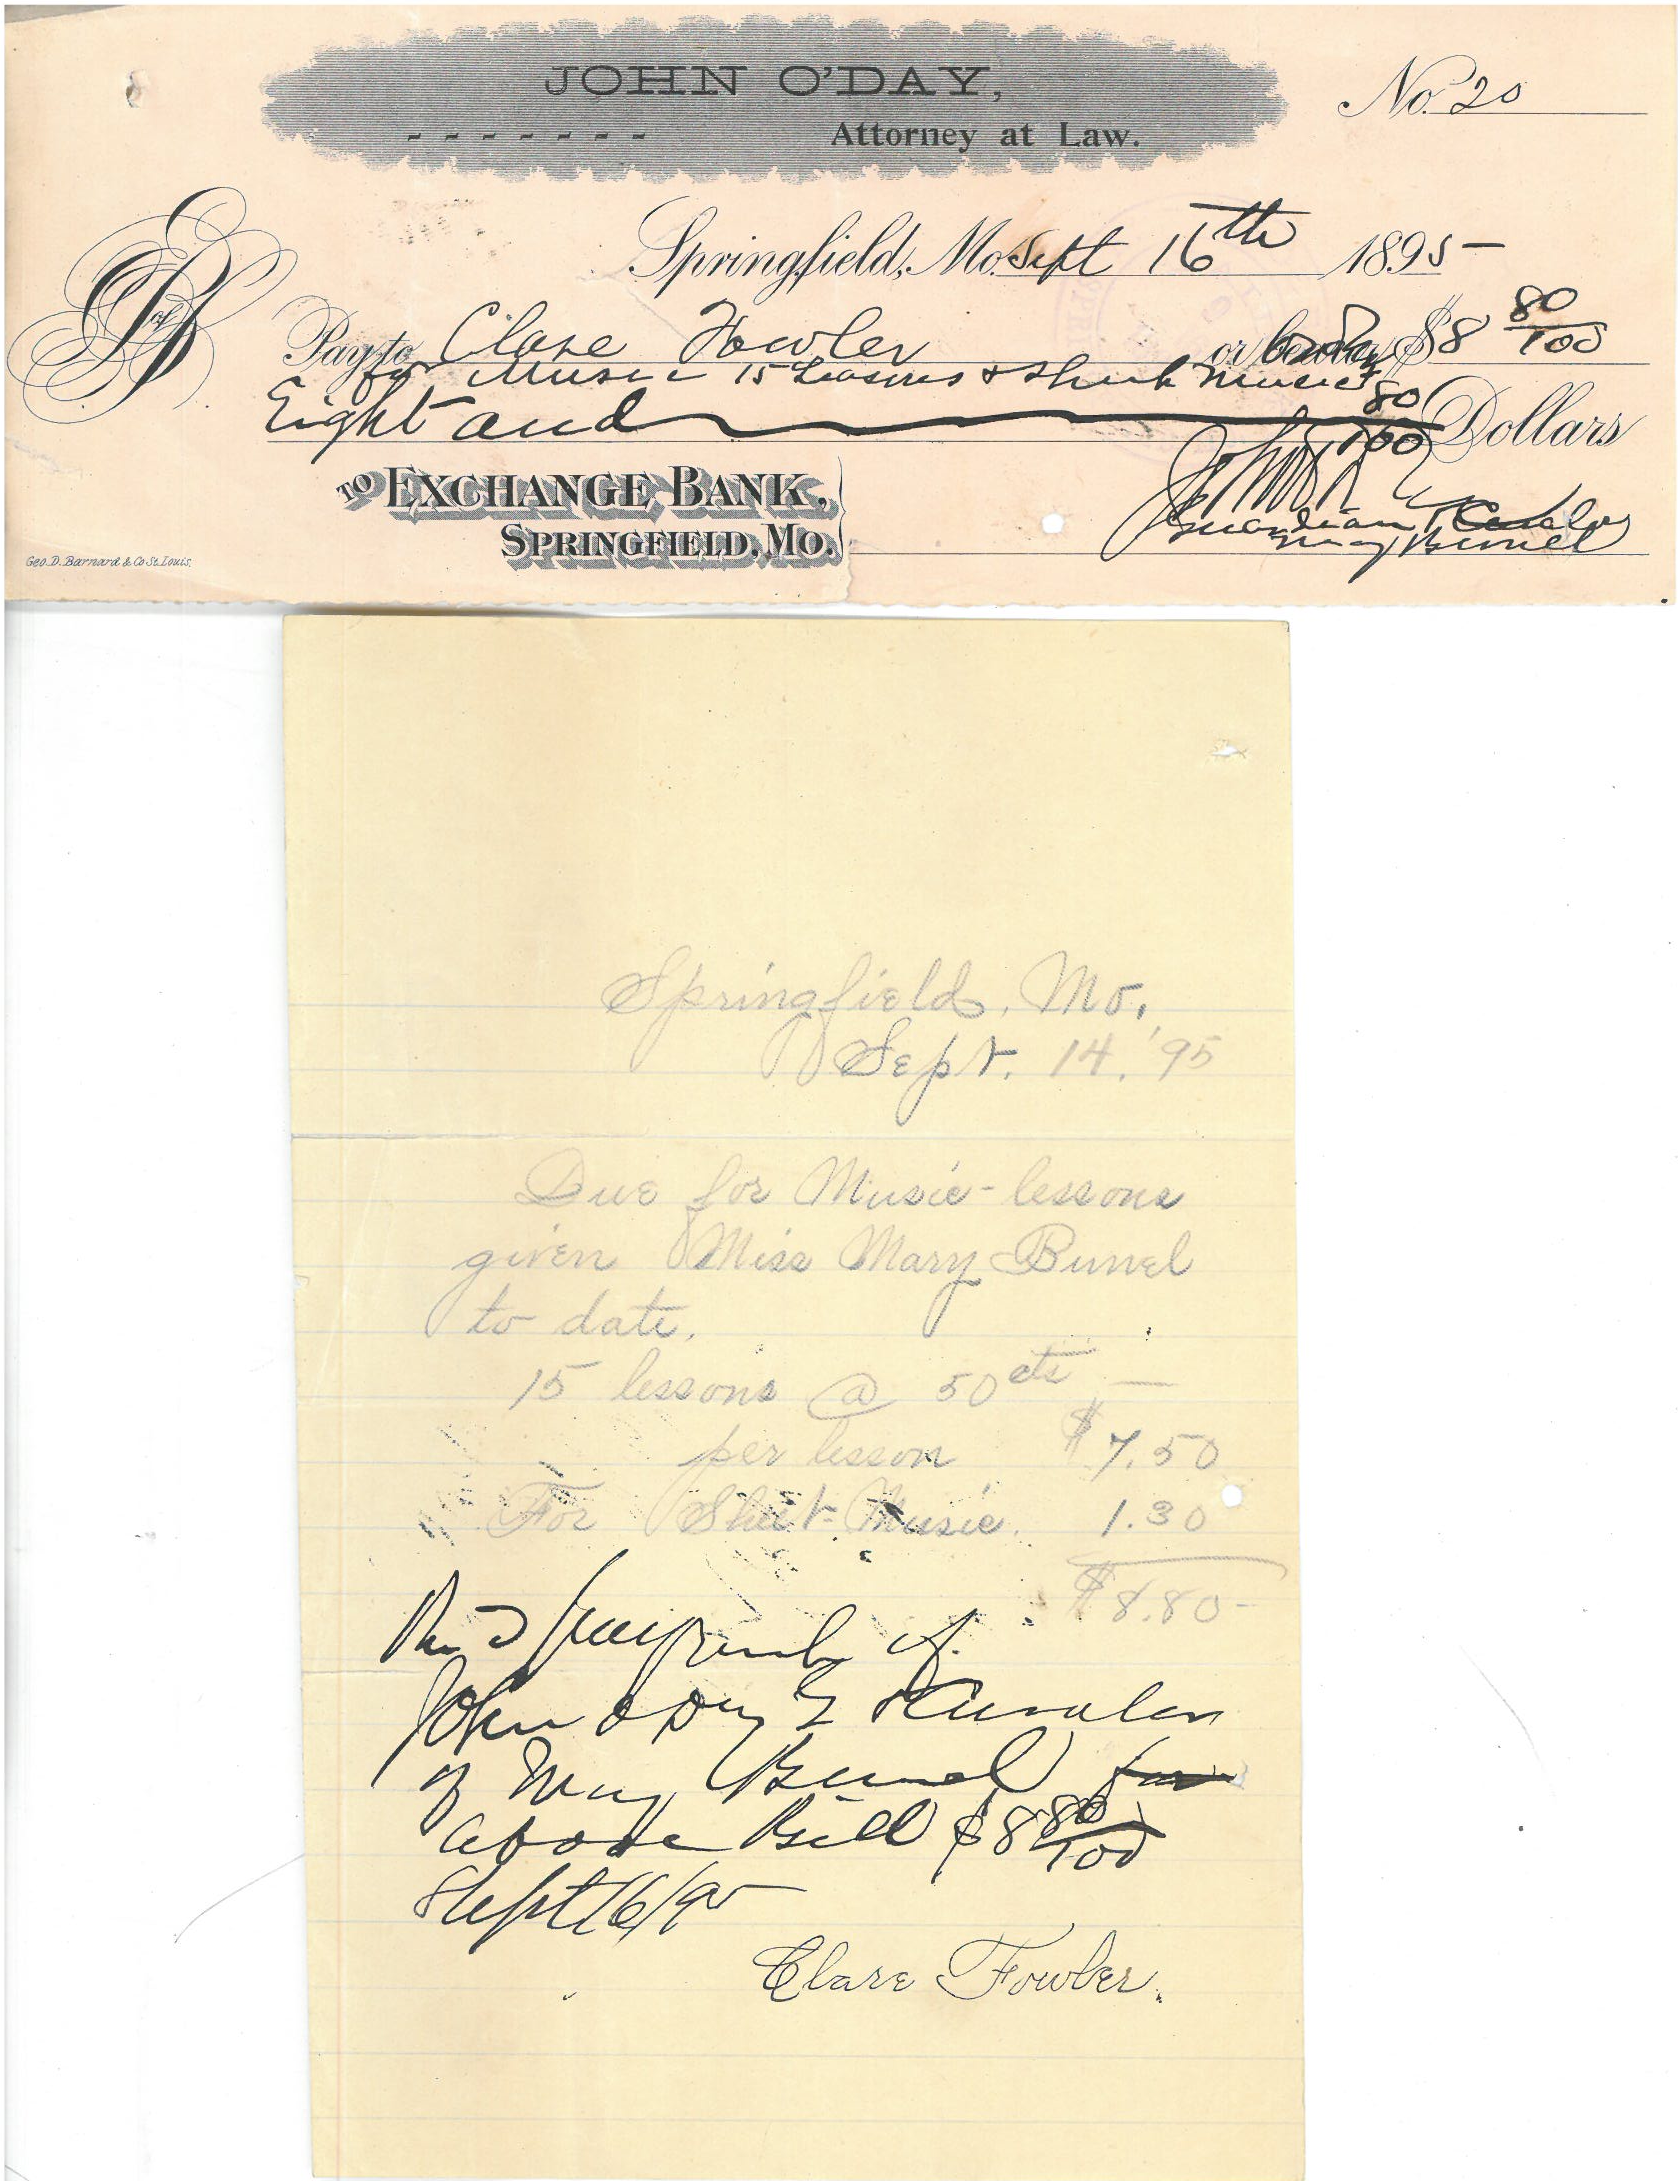 JOHN O'DAY,
Attorney at Law.
No. 20
Springfield, Mo. Sept 16th 1895
Pay to Clare Fowler or $8 80/100
for Music 15 Lessons & Sheet Music
Eight and 80/100 Dollars
TO EXCHANGE BANK,
SPRINGFIELD, MO.
Guardian & Curator
Mary Bunel
Geo. D. Barnard & Co St. Louis.
Springfield, Mo.
Sept. 14. '95
Due for Music-lessons
given Miss Mary Bunel
to date.
15 lessons @ 50 cts —
per lesson $7.50
For Sheet-Music. 1.30
$8.80-
Recd payment of
John O'Day G & Curator
of Mary Bunel for
above Bill $8 80/100
Sept 16/95
Clare Fowler.